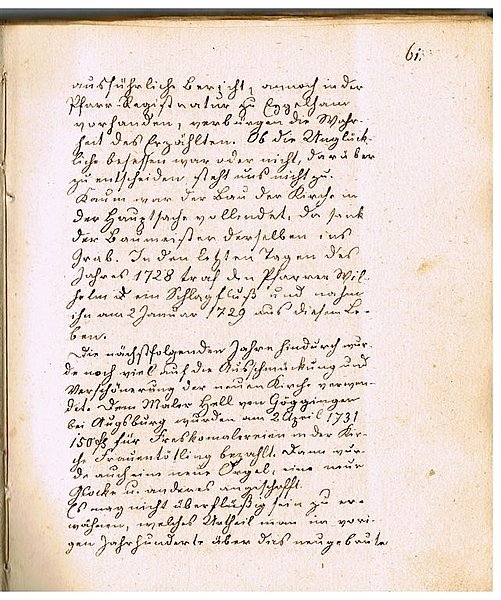 61.
ausführliche Bericht, annoch in der
Pfarr-Registratur zu Egglham
vorhanden, verbürgen die Wahr-
heit des Erzählten. Ob die Unglück-
liche besessen war oder nicht, darüber
zu entscheiden steht uns nicht zu.
Kaum war der Bau der Kirche in
der Hauptsache vollendet, da sank
der Baumeister derselben ins
Grab. In den letzten Tagen des
Jahres 1728 traf den Pfarrer Wil-
helm ein Schlagfluß und nahm
ihn am 2 Januar 1729 aus diesem Le-
ben.
Die nächstfolgenden Jahre hindurch wur-
de noch viel auf die Ausschmückung und
Verschönerung der neuen Kirche verwen-
det. Dem Maler Hell von Göggingen
bei Augsburg wurden am 2 April 1731
150 fl für Freskomalereien in der Kir-
che Frauentötling bezahlt. Dann wur-
de auch eine neue Orgel, eine neue
Glocke u. anderes angeschafft.
Es mag nicht überflüßig sein zu er-
wähnen, welches Urtheil man im vori-
gen Jahrhunderte über dies neugebaute